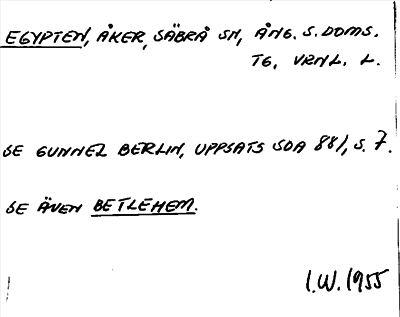 EGYPTEN, ÅKER, SÄBRÅ SN, ÅNG. S. DOMS.
TG, VRNL. L.
SE GUNNEL BERLIN, UPPSATS SOA 881, S. 7.
SE ÄVEN BETLEHEM.
I.W. 1955